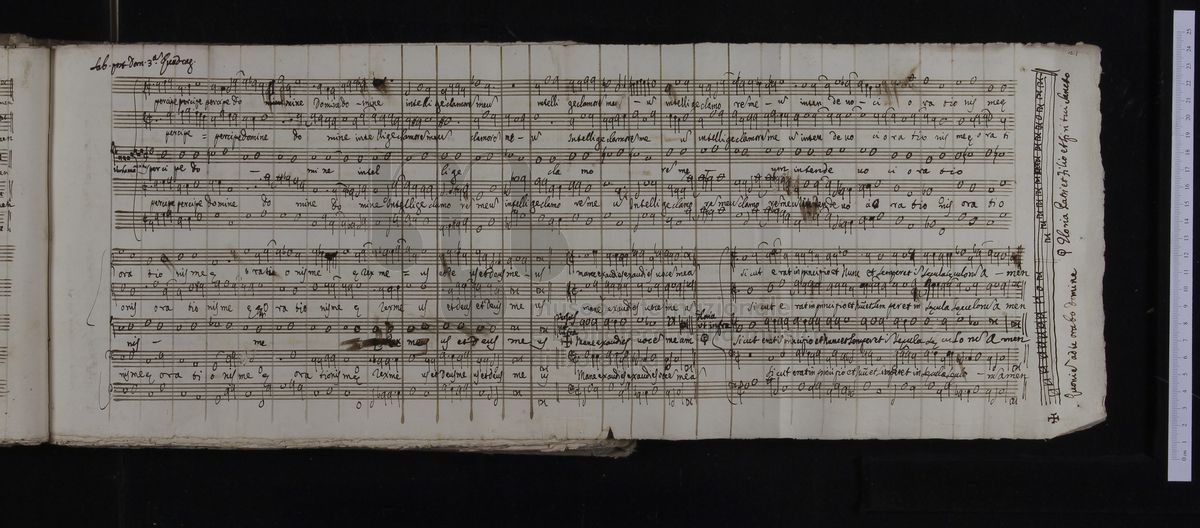 Sab. post Dom. 3ª Quadrag.
percipe percipe percipe do mine Domine do - mine intellige clamore meu intelli ge clamore me - u intellige clamo re me - u inten de uo - ci o ra tio nis meę
percipe = percipe domine do mine intellige clamore meu clamore me - u Intellige clamore me u intellige clamore me u inten de uo ci o ra tio nis meę ora ti
perci pe do - mi ne intel lige cla mo re me um intende uo ci ora tio
percipe percipe Domine do mine do mine Intellige clamo re meu intellige clamo re me u Intellige clamo re meu clamo re meu intende uo ci o ra tio nis ora tio
ora tio nis me ę ora tio nis me ę Rex me = us et De us et Deus me - us mane exaudies exaudies uoce mea Sicut erat in principio et nunc et semper et in secula seculoru A - men
onis ora tio nis me ę ora tio nis me ę Rex me us et Deus et Deus me us mane exaudies uoce mea Sicut erat in principio et nunc et semper et in secula seculoru A men
nis - me ę Rex me us et Deus me us Mane exaudies uoce meam Sicut erat in principio et nunc et semper et in secula seculoru A men
nis meę ora ti o nis me ę ora tionis meę Rex me us et Deus me us et Deus me us Mane exaudies exaudies uoce mea Sicut erat in principio et nunc et semper et in secula seculo - ru Amen
Quonia ad te orabo Domine
Gloria Patri et filio et spiritui Sancto